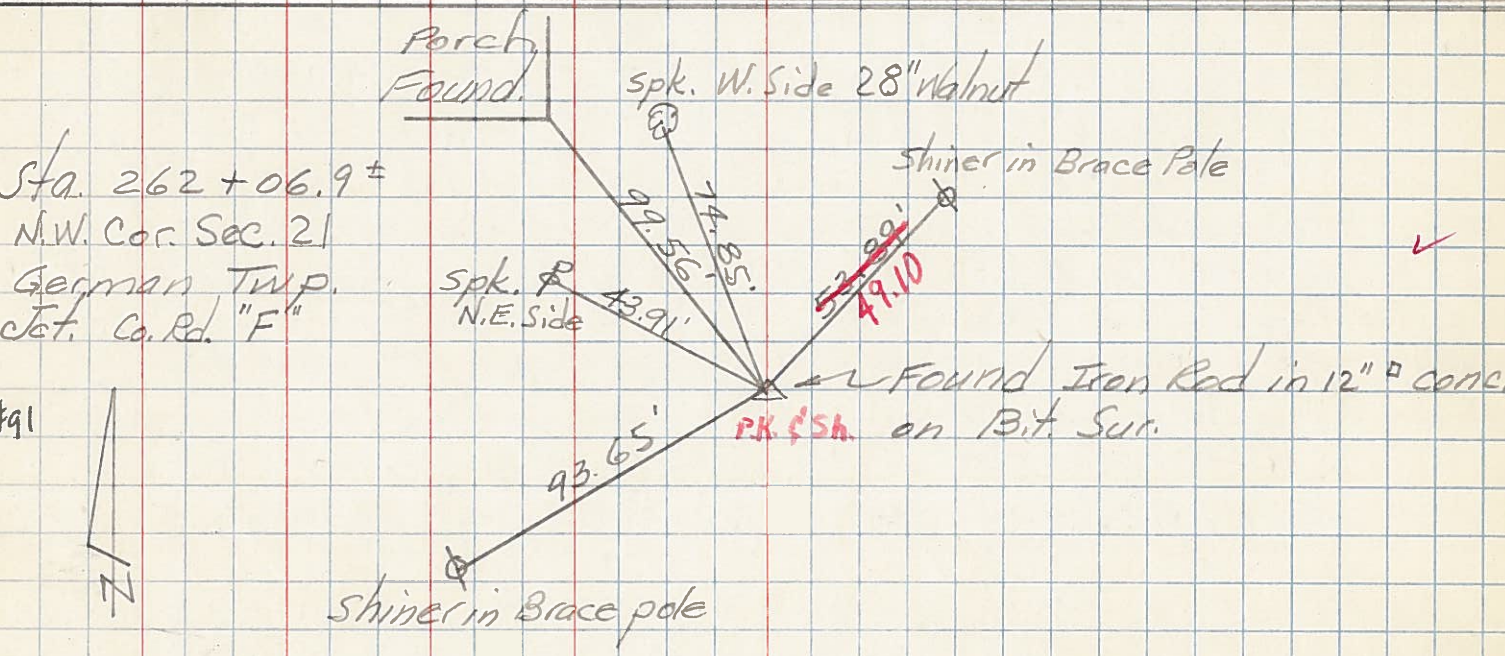 Porch
Found.
spk. W. Side 28" Walnut
Shiner in Brace Pole
Sta. 262 + 06.9 ±
N.W. Cor. Sec. 21
German Twp.
Jct. Co. Rd. "F"
spk. P
N.E. Side
43.91'
99.56'
74.85'
49.10
Found Iron Rod in 12" □ conc
on Bit. Sur.
P.K. & Sh.
#91
93.65'
N
Shiner in Brace pole